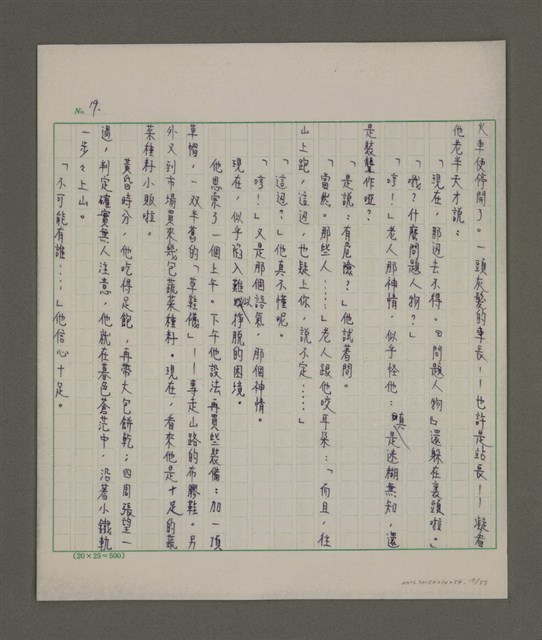 No. 19.
火車便停開了。一頭灰髮的車長——也許是站長——凝着
他老半天才說:
「現在,那邊去不得。『問題人物』還躲在裏頭啦。」
「哦?什麼問題人物?」
「哼!」老人那神情,似乎怪他:真是迷糊無知,還
是裝聾作啞?
「是說:有危險?」他試着問。
「當然。那些人……」老人跟他咬耳朵:「而且,往
山上跑,這週,也疑上你,說不定……」
「這週?」他真不懂呢。
「哼!」又是那個語氣,那個神情。
現在,似乎陷入難以掙脫的困境。
他思索了一個上午。下午他設法再買些裝備:加一頂
草帽,一双半舊的「草鞋儀」——專走山路的布膠鞋。另
外又到市場買來幾包蔬菜種籽。現在,看來他是十足的蔬
菜種籽小販啦。
黃昏時分,他吃得足飽,再帶大包餅乾;四周張望一
遍,判定確實無人注意,他就在暮色蒼茫中,沿著小鐵軌
一步々上山。
「不可能有誰……」他信心十足。
(20×25=500)